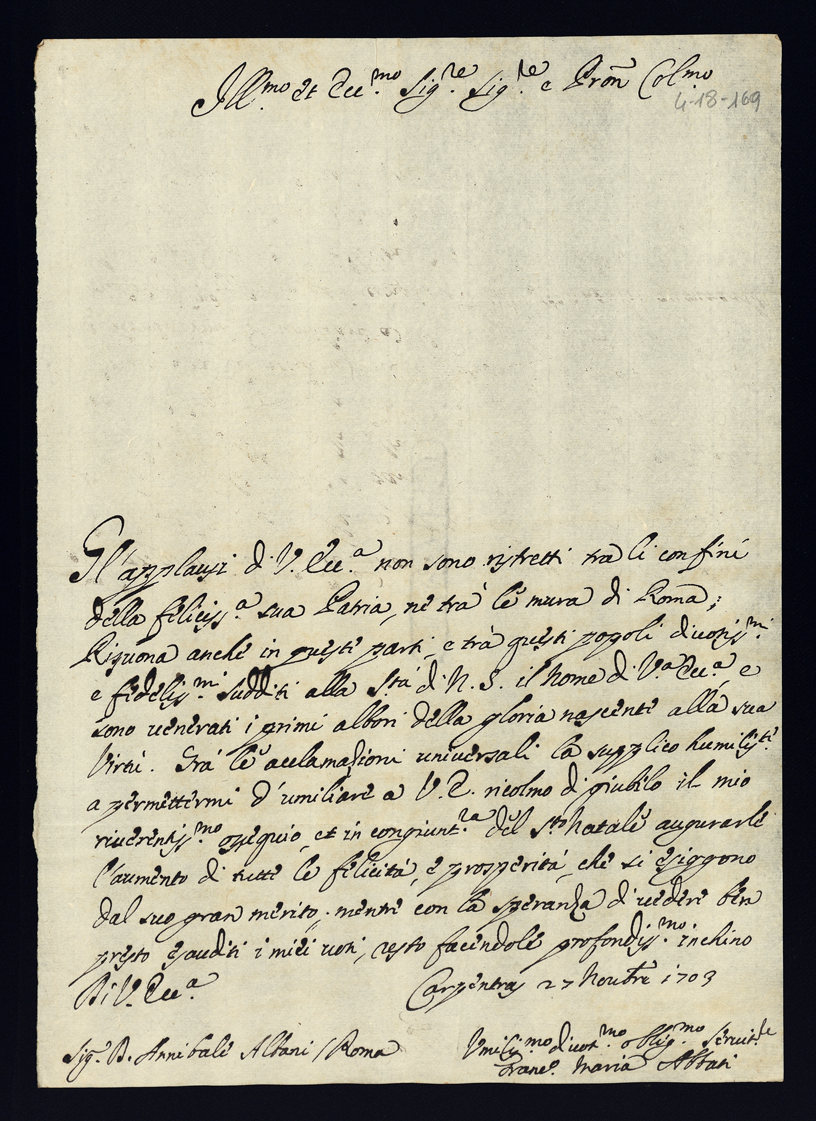 Ill.mo et Ecc.mo Sig.re Sig.re e Pron Col.mo
4-18-169
Gl'applausi di V. Ecc.a non sono ristretti tra li confini
della feliciss.a sua Patria, ne trà le mura di Roma;
Risuona anche in queste parti, e trà questi popoli divotiss.mi
e fedeliss.mi sudditi alla S.tà di N. S. il nome di V.a Ecc.a, e
sono venerati i primi albori della gloria nascente alla sua
Virtù. Trà le acclamazioni universali la supplico humiliss.te
a permettermi d'umiliare a V. E. ricolmo di giubilo il mio
riverentiss.mo ossequio, et in congiunt.ra del S.to Natale augurarle
l'aumento di tutte le felicità, e prosperità, che si esiggono
dal suo gran merito, mentre con la speranza di vedere ben
presto esauditi i miei voti, resto facendole profondiss.mo inchino
Di V. Ecc.a
Carpentras 27 Novbre 1703
Sig.r D. Annibale Albani / Roma
Umiliss.mo divot.mo oblig.mo Servit.re
Franc.o Maria Abbati